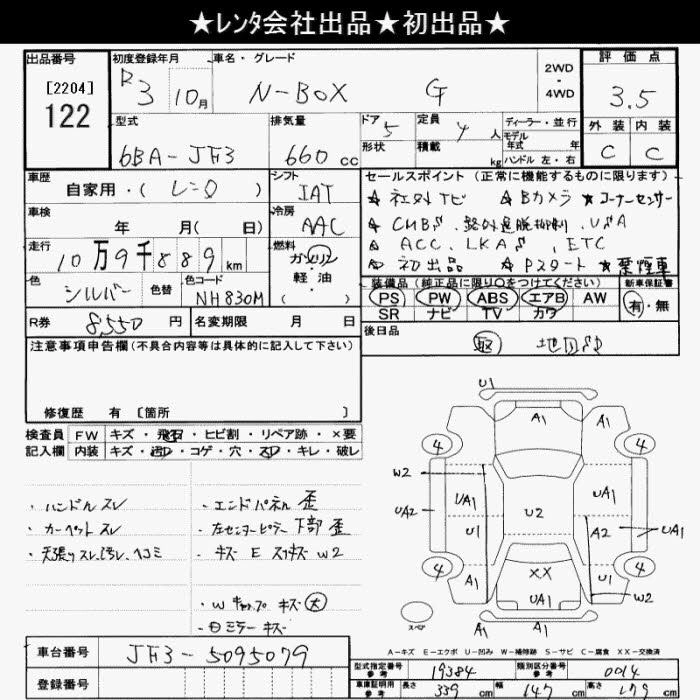 ★レンタ会社出品★初出品★
出品番号 初度登録年月 車名・グレード 2WD・4WD 評価点
[2204] 122 R3 10月 N-BOX G 3.5
型式 排気量 ドア 5 定員 4人 ディーラー・並行 外装 内装
6BA-JF3 660cc 形状 積載 kg モデル年式 年 ハンドル 左・右 C C
車歴 自家用・(レンタ) シフト IAT セールスポイント(正常に機能するものに限ります)
☆社外TV ☆Bカメラ ★コーナーセンサー
車検 年 月(日) 冷房 AAC ☆CMBS、路外逸脱抑制、VSA
走行 10万9千889km 燃料 ガソリン 軽・油・( ) ☆ACC、LKAS、ETC
☆初出品 ☆Pスタート ☆禁煙車
色 シルバー 色替 色コード NH830M 装備品(純正品に限り○をつけてください) 新車保証書
PS PW ABS エアB AW 有・無
SR ナビ TV カワ
R券 8,550円 名変期限 月 日 後日品
注意事項申告欄(不具合内容等は具体的に記入して下さい)
修復歴 有 [箇所 ]
検査員記入欄 FW キズ・飛石・ヒビ割・リペア跡・×要
内装 キズ・汚レ・コゲ・穴・スレ・キレ・破レ
・ハンドルスレ ・エンドパネル歪
・カーペットスレ ・左センターピラー下部歪
・天張りスレ、汚レ、ヘコミ ・キズE スリキズW2
・Wキャップキズ大
・Rミラーキズ
U1
A1 A1
4 4
W2 UA1 UA1
UA2 U2 UA1
U1 A2
4 XX 4
A1 UA1 U1 W2
スペア A1 A1
A－キズ E－エクボ U－凹み W－補修跡 S－サビ C－腐食 XX－交換済
車台番号 JF3-5095079
登録番号
型式指定番号 参考 19384 類別区分番号 参考 0014
車庫証明用 参考 長さ 339cm 幅 147cm 高さ 179cm